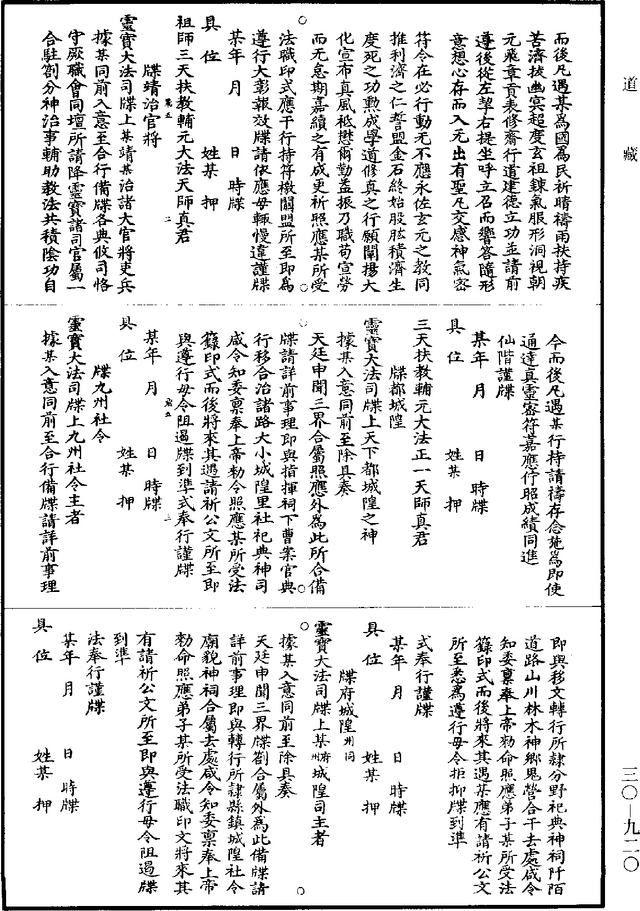 道藏
三〇—九二〇
而後凡遇某為國為民祈晴禱雨扶持疾
苦濟拔幽冥超度玄祖鍊氣服形洞視朝
元飛章貢表修齋行道建德立功並請前
遵後從左挈右提坐呼立召而響答隨形
意想心存而入无出有聖凡交感神氣密
符令在必行動无不應永佐玄元之教同
推利濟之仁誓盟金石終始股肱積濟生
度死之功勲成學道修真之行願闡揚大
化宣布真風秪懋爾勤益振乃職苟宣勞
而无怠期嘉績之有成更祈照應某所受
法職印式應干行持符檄關盟所至即為
遵行大彰報效牒請依應毋輒慢違謹牒
某年 月 日 時牒
具位 姓某 押
祖師三天扶教輔元大法天師真君
牒靖治官將
靈寶大法司牒上某靖某治諸大官將吏兵
據某同前入意至合行備牒各典攸司恪
守厥職會同壇所請降靈寶諸司官屬一
合駐劄分神治事輔助教法共積陰功自
今而後凡遇某行持請禱存念蒞為即使
通達真靈密符嘉應佇昭成績同進
仙階謹牒
某年 月 日 時牒
具位 姓某 押
三天扶教輔元大法正一天師真君
牒都城隍
靈寶大法司牒上天下都城隍之神
據某入意同前至除具奏
天廷申聞三界合屬照應外為此所合備
牒請詳前事理即與指揮祠下曹案官典
行移合治諸路大小城隍里社祀典神司
咸令知委稟奉上帝勑令照應某所受法
籙印式而後將來其遇請祈公文所至即
與遵行毋令阻遏牒到準式奉行謹牒
某年 月 日 時牒
具位 姓某 押
牒九州社令
靈寶大法司牒上九州社令主者
據某入意同前至合行備牒請詳前事理
即與移文轉行所隸分野祀典神祠阡陌
道路山川林木神鄉鬼營合干去處咸令
知委稟奉上帝勑命照應弟子某所受法
籙印式而後將來其遇某應有請祈公文
所至悉為遵行毋令拒抑牒到準
式奉行謹牒
某年 月 日 時牒
具位 姓某 押
牒府城隍州同
靈寶大法司牒上某府州城隍司主者
據某入意同前至除具奏
天廷申聞三界牒劄合屬外為此備牒請
詳前事理即與轉行所隸縣鎮城隍社令
廟貌神祠合屬去處咸令知委稟奉上帝
勑命照應弟子某所受法職印文將來其
有請祈公文所至即與遵行毋令阻遏牒
到準
法奉行謹牒
某年 月 日 時牒
具位 姓某 押